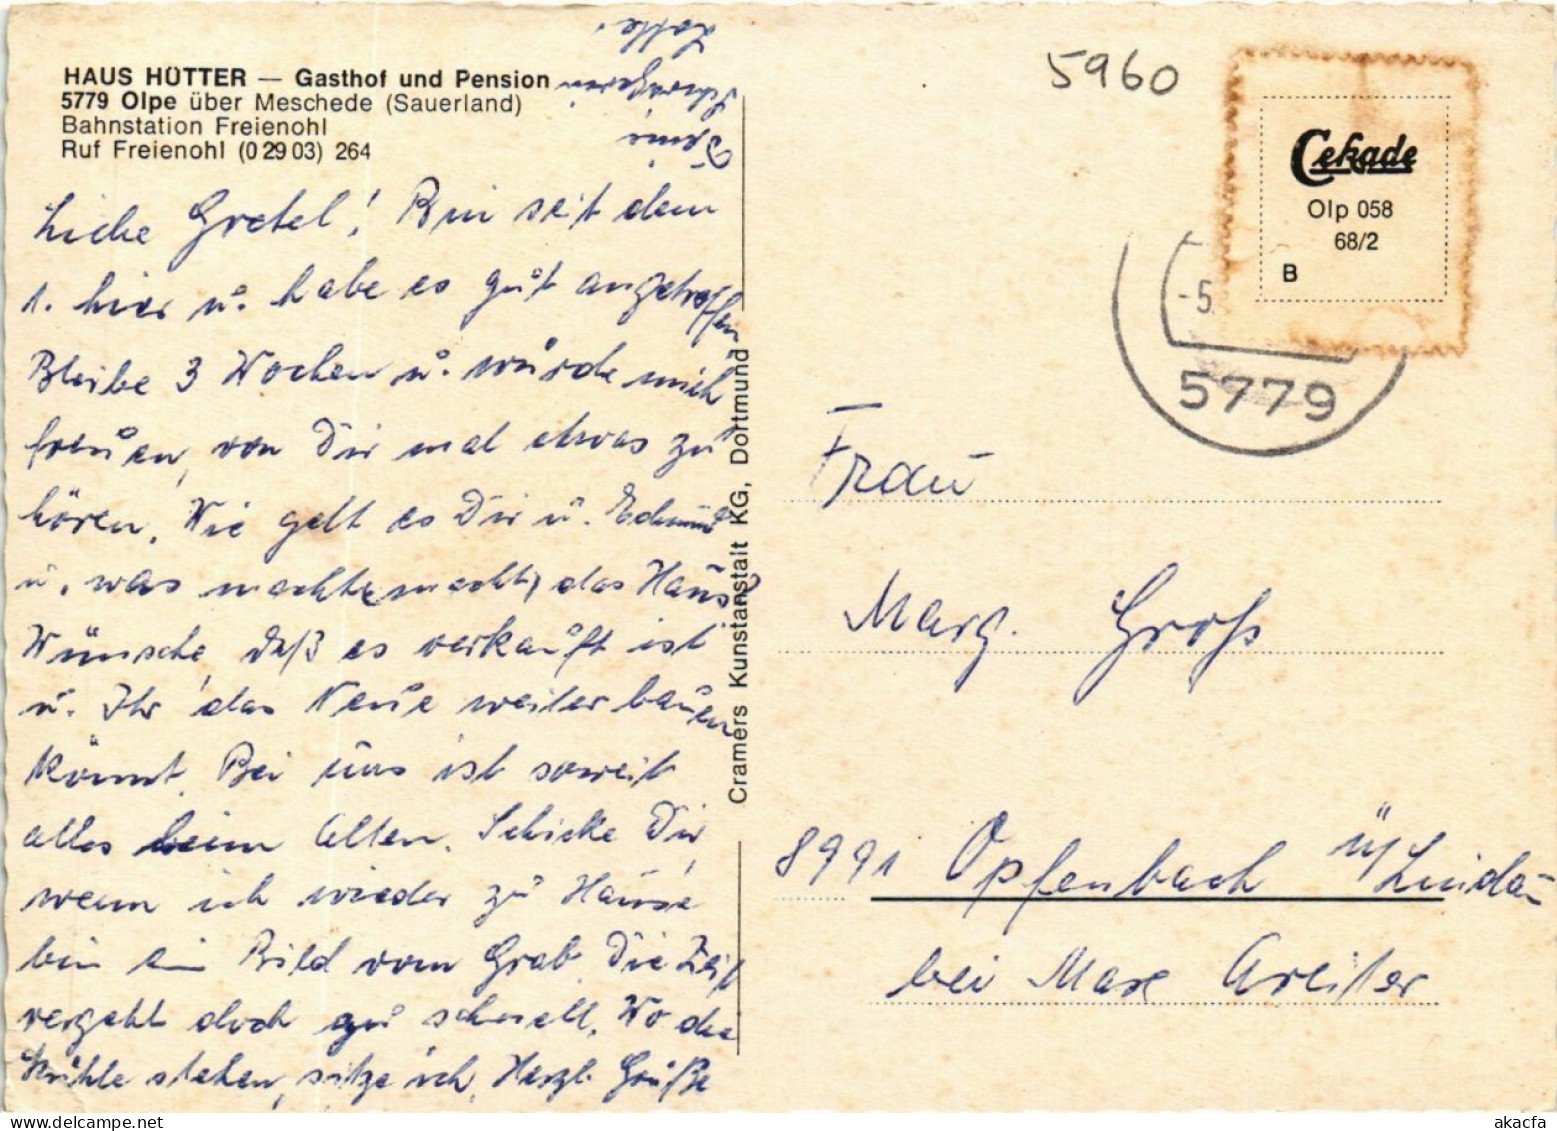 HAUS HÜTTER — Gasthof und Pension
5779 Olpe über Meschede (Sauerland)
Bahnstation Freienohl
Ruf Freienohl (0 29 03) 264
Liebe Gretel! Bin seit dem
1. hier u. habe es gut angetroffen
Bleibe 3 Wochen u. würde mich
freuen, von Dir mal etwas zu
hören. Wie geht es Dir u. Edmund
u. was macht das Haus?
Wünsche, daß es verkauft ist
u. Ihr das Neue weiter bauen
könnt. Bei uns ist soweit
alles beim Alten. Schicke Dir,
wenn ich wieder zu Hause
bin ein Bild vom Grab. Die Zeit
vergeht doch zu schnell. Wo die
Stühle stehen, sitze ich. Herzl. Grüße
Deine
Schwägerin
Lotte.
Cramers Kunstanstalt KG, Dortmund
5960
Cekade
Olp 058
68/2
B
-5.
5779
Frau
Marg. Groß
8991 Opfenbach ü/Lindau
bei Max Greiter
akacfa
www.akacfa.com